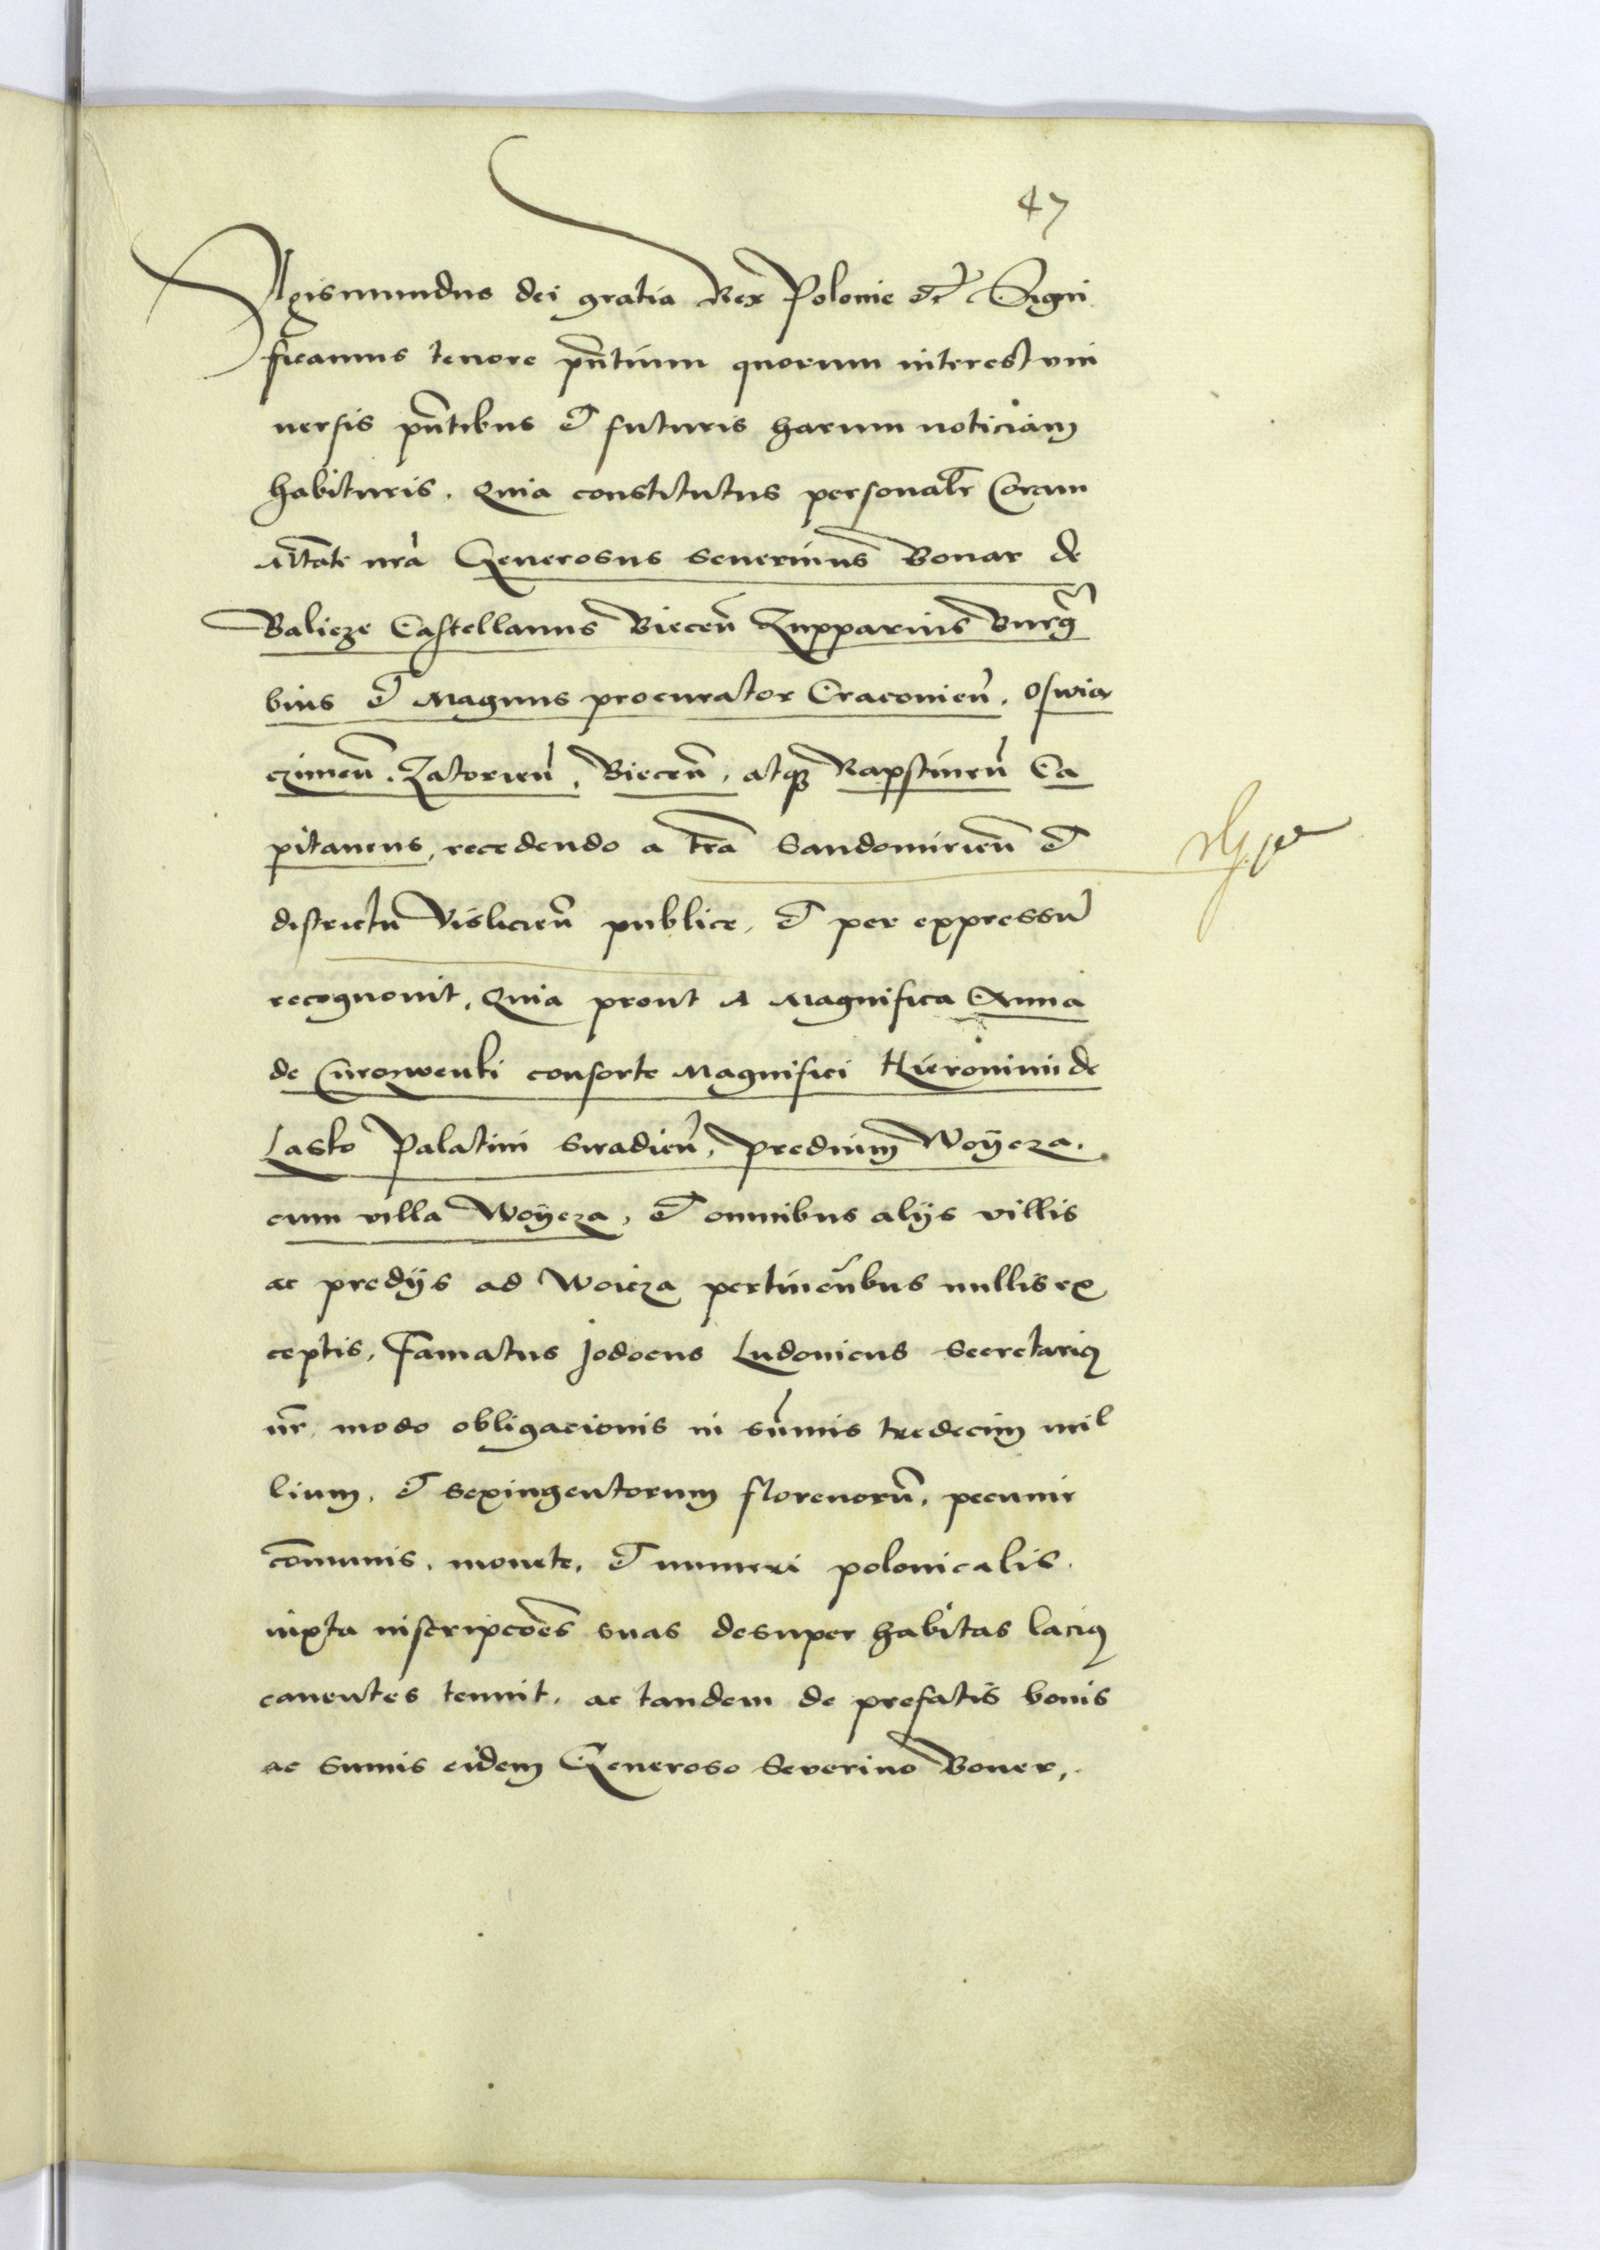 47
Sigismundus dei gratia Rex Polonie etc Signi
ficamus tenore pñtium quorum interest vni
uersis pñtibus et futuris harum noticiam
habituris. Quia constitutus personalr Coram
Mtãte nrã Generosus Seuerinus Bonar de
Balicze Castellanus Biecen̄ Zupparius Burg̃
bius et Magnus procurator Cracouien̄. Oswia
czimen̄. Zatorien̄. Biecen̄. atq̃ Rapstinen̄ Ca
pitaneus, recedendo a tr̃a Sandomirien̄ et
districtu Vislicien̄ publice, et per expressũ
recognouit. Quia prout A Magnifica Anna
de Curozwenki consorte Magnifici Hieronimi de
Lasko Palatini Siradien̄, predium Woÿcza.
cum villa Woÿcza, et omnibus alijs villis
ac predijs ad Woicza pertinen̄bus nullis ex
ceptis, Famatus Jodocus Ludouicus Secretariꝯ
nr̃ modo obligacionis in sũmis tredecim mil
lium, et sexingentorum florenorũ, pecunie
cõmunis. monete, et numeri polonicalis.
iuxta inscripcões suas desuper habitas laciꝯ
canentes tenuit. ac tandem de prefatis bonis
ac sumis eidem Generoso Seuerino Boner,